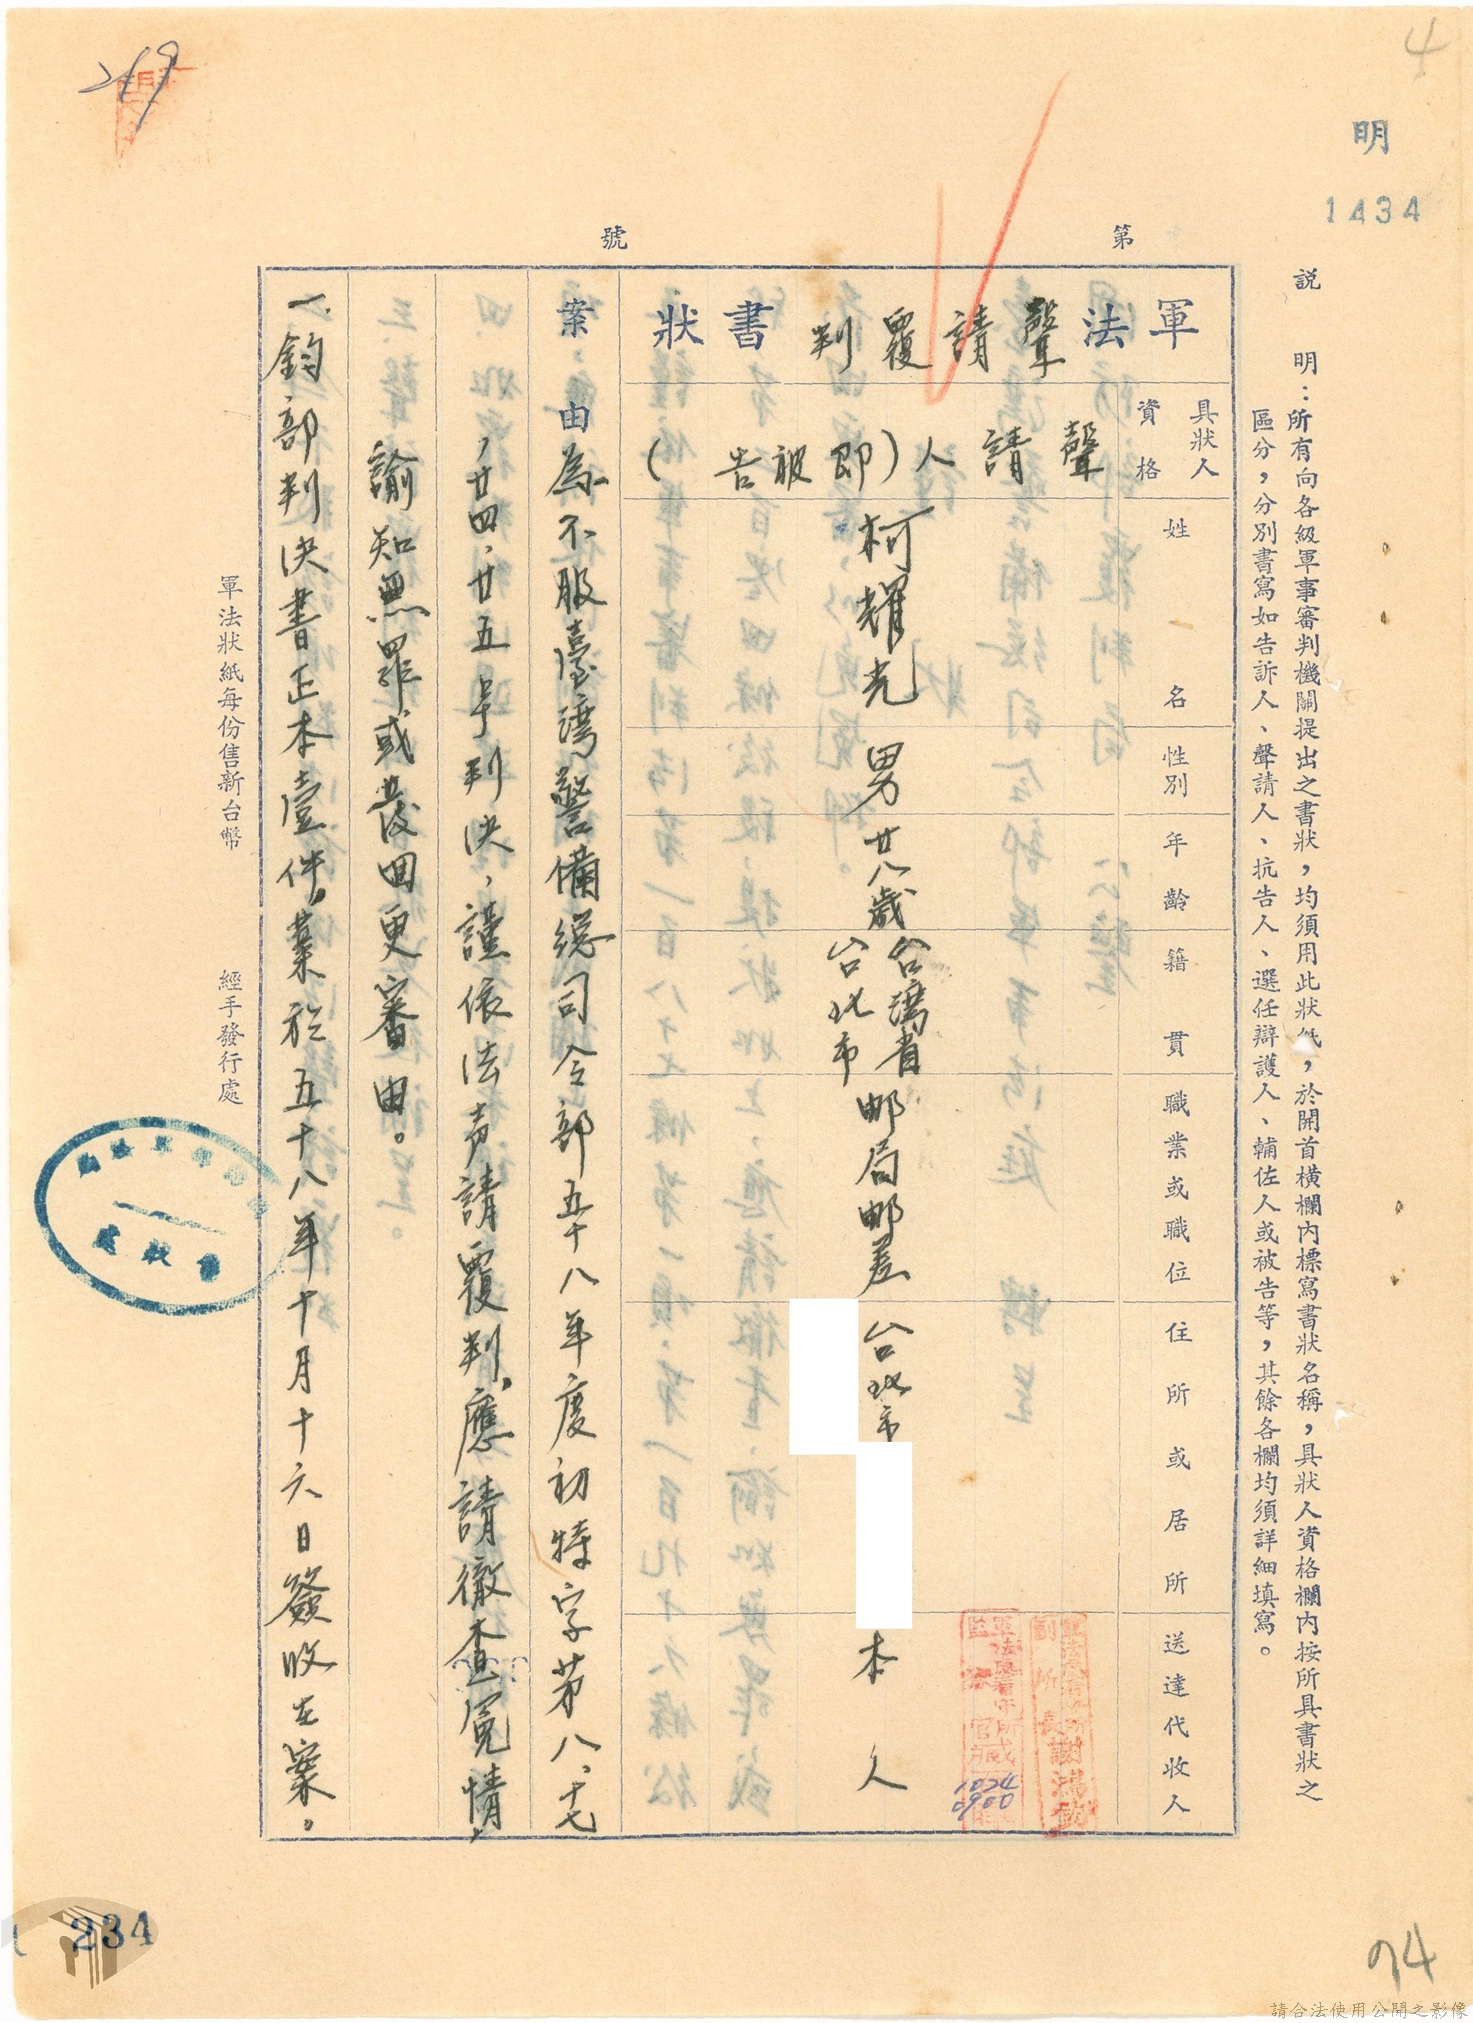 4
明
1434
219
說　明：所有向各級軍事審判機關提出之書狀，均須用此狀紙，於開首橫欄內標寫書狀名稱，具狀人資格欄內按所具書狀之
區分，分別書寫如告訴人、聲請人、抗告人、選任辯護人、輔佐人或被告等，其餘各欄均須詳細填寫。
第　號
軍法聲請覆判書狀
具狀人資格
姓名
性別
年齡
籍貫
職業或職位
住所或居所
送達代收人
聲請人(即被告)
柯耀光
男
廿八歲
台灣省
台北市
邮局邮差
台北市
本人
副所長謝鴻欽
1024
0900
案由
為不服臺灣警備總司令部五十八年度初特字第八、十七
，廿四、廿五号判決，謹依法声請覆判，應請徹查冤情，
諭知無罪或發回更審由。
一、鈞部判決書正本壹件，業於五十八年十月十六日簽收在案。
軍法狀紙每份售新台幣　經手發行處
234
94
請合法使用公開之影像